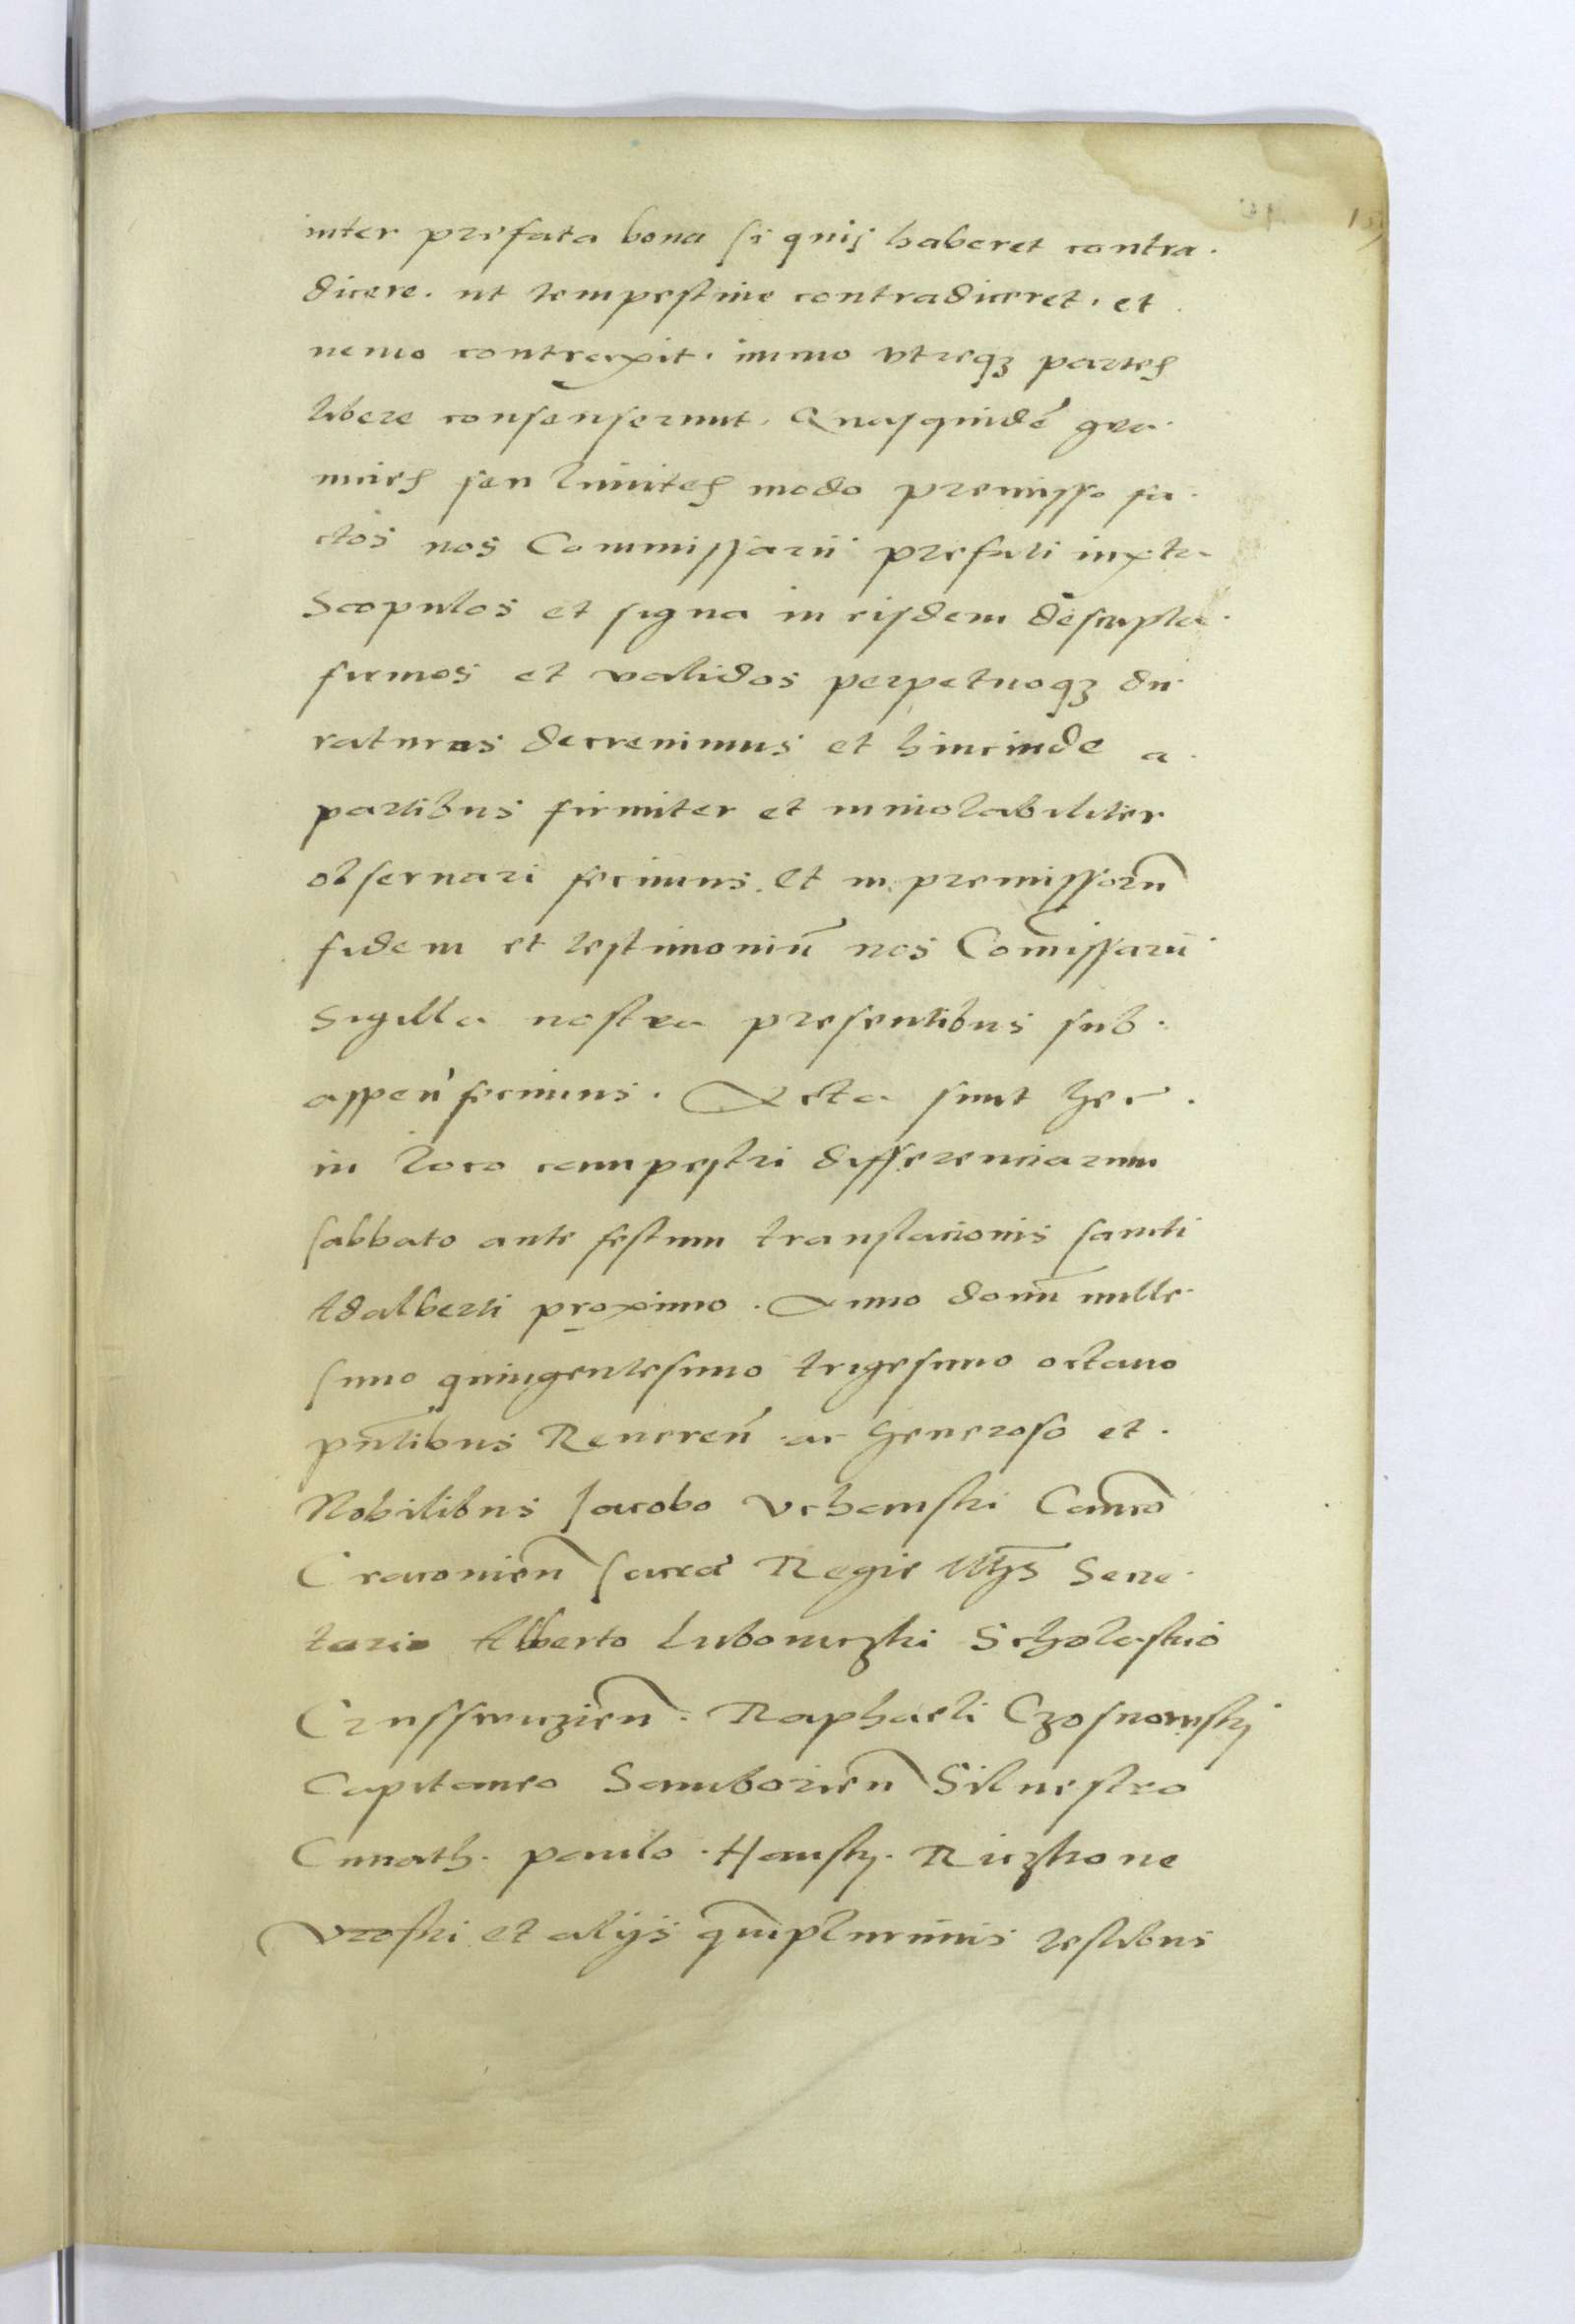 inter prefata bona si quis haberet contra
dicere. ut tempestiue contradiceret. et
nemo contradixit. immo vtreqȝ partes
libere consenserunt. Quasquidē gra
nicies seu limites modo premisso fa
ctos nos Commissarii prefati iuxta
Scopulos et signa in eisdem descripta
firmos et validos perpetuoqȝ du
raturos decreuimus et hincinde a
partibus firmiter et inuiolabiliter
obseruari fecimus. Et in premissorū
fidem et testimoniū nos Comissarii
Sigilla nostra presentibus sub
appen̄ fecimus. Acta sunt hec
in loco campestri differenciarum
sabbato ante festum translacionis sancti
Adalberti proximo. Anno domī mille
simo quingentesimo trigesimo octauo
pn̄tibus Reueren̄ ac generoso et
Nobilibus Jacobo Vchanski Canco
Cracouien̄ Sacre Regie Mtis Secre
tario Alberto Lubomirzki Scholastico
Crusswiczien̄. Raphaeli Czosnowskj
Capitaneo Samborien̄ Siluestro
Cunath. paulo Hansky. Riczkone
Vroski et alijs quāplurimis testibus